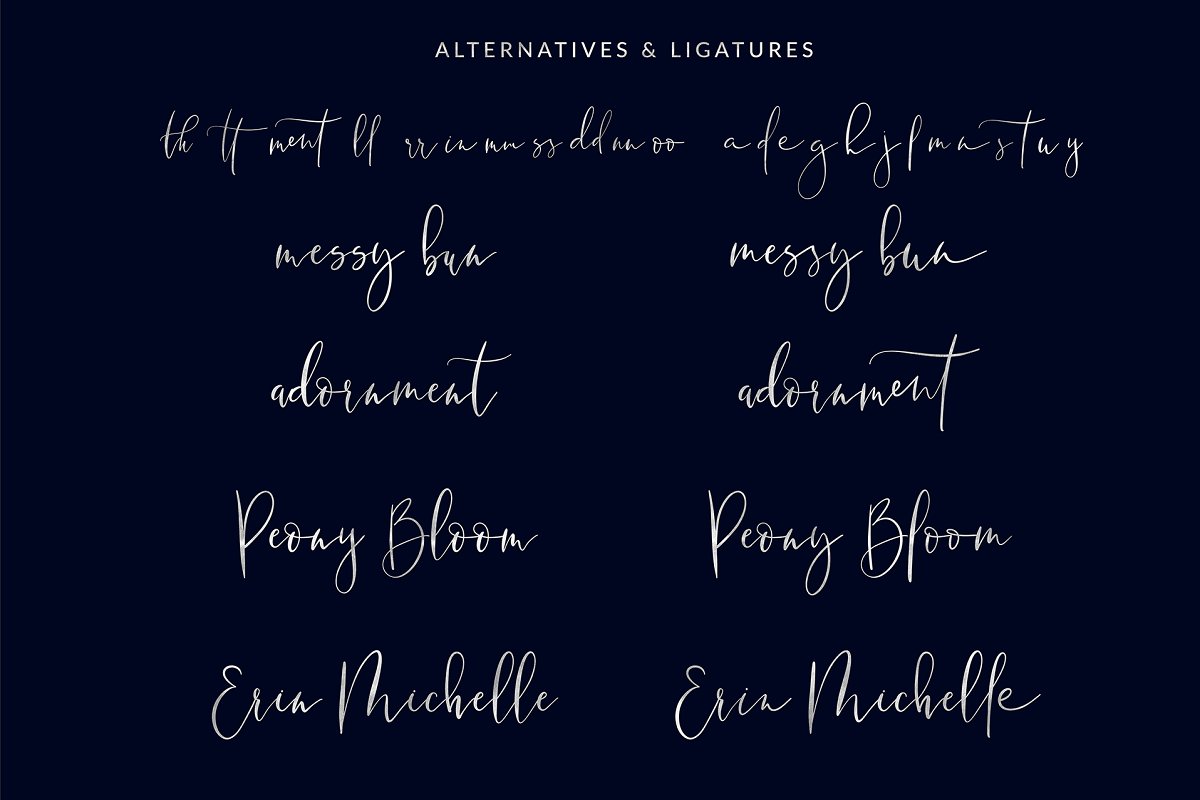 ALTERNATIVES & LIGATURES
th tt ment ll rr in mm ss dd nn oo a d e g h j l m n s t u y
messy bun messy bun
adornment adornment
Peony Bloom Peony Bloom
Erin Michelle Erin Michelle